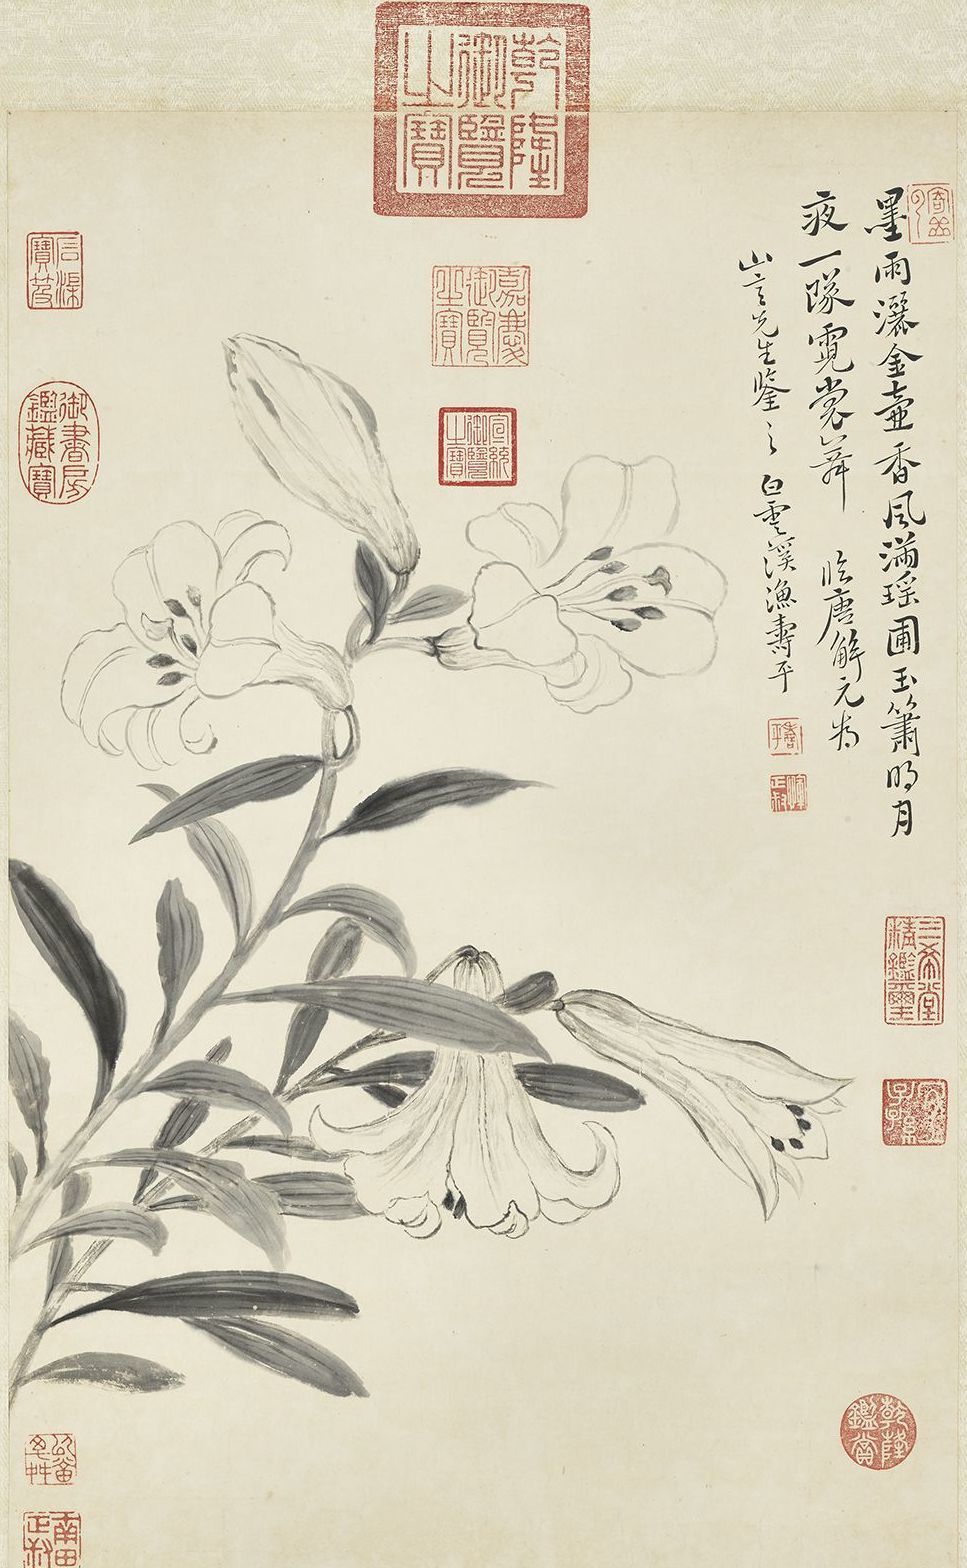 墨雨灑金壺香風滿瑤圃玉簫明月
夜一隊霓裳舞 臨唐解元本
山言先生鑒之 白雲溪漁壽平
乾隆御覽之寶
嘉慶御覽之寶
宣統御覽之寶
石渠寶笈
御書房鑑藏寶
壽平
三希堂精鑑璽
宜子孫
乾隆鑑賞
南田
正叔